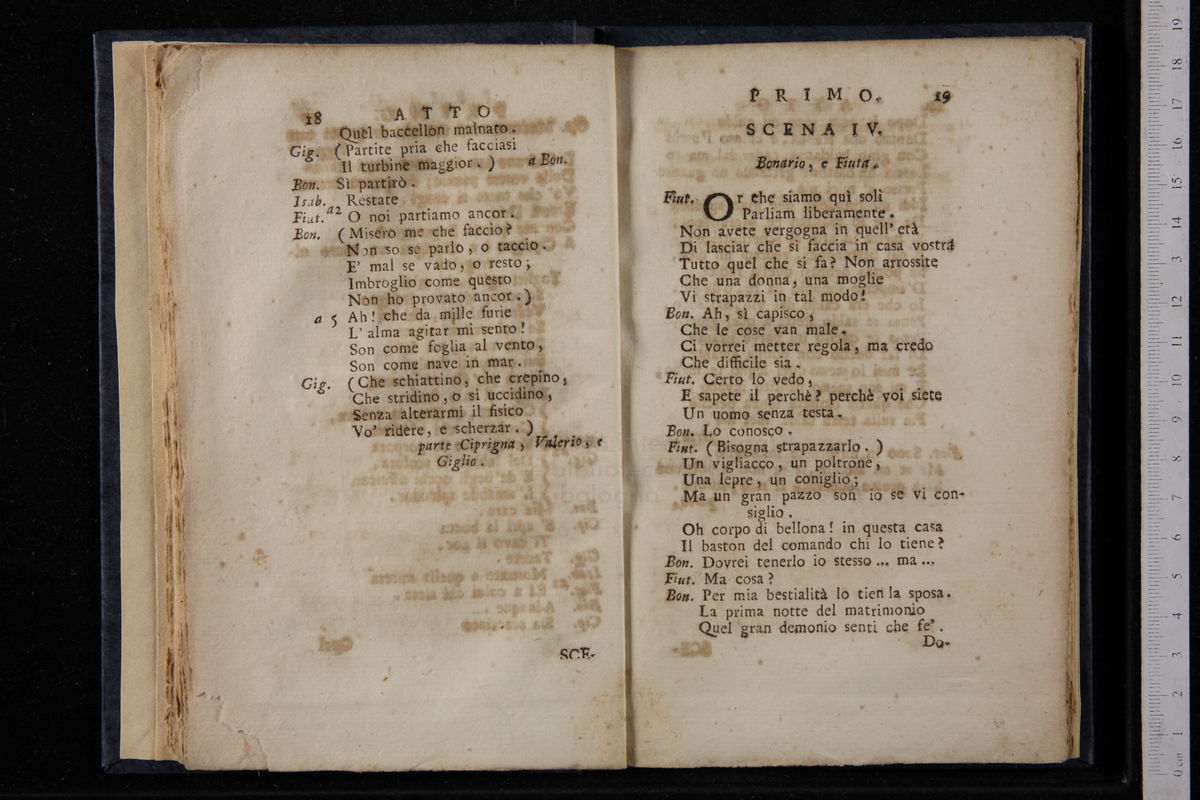 18 ATTO
Quel baccellon malnato.
Gig. (Partite pria che facciasi
Il turbine maggior.) a Bon.
Bon. Sì partirò.
Isab. Restate
Fiut. a2 O noi partiamo ancor.
Bon. (Misero me che faccio?
Non so se parlo, o taccio.
E' mal se vado, o resto;
Imbroglio come questo
Non ho provato ancor.)
a 5 Ah! che da mille furie
L' alma agitar mi sento!
Son come foglia al vento,
Son come nave in mar.
Gig. (Che schiattino, che crepino,
Che stridino, o si uccidino,
Senza alterarmi il fisico
Vo' ridere, e scherzar.)
parte Ciprigna, Valerio, e
Giglio.
SCE-
PRIMO. 19
SCENA IV.
Bonario, e Fiuta.
Fiut. Or che siamo quì soli
Parliam liberamente.
Non avete vergogna in quell' età
Di lasciar che si faccia in casa vostra
Tutto quel che si fa? Non arrossite
Che una donna, una moglie
Vi strapazzi in tal modo!
Bon. Ah, sì capisco,
Che le cose van male.
Ci vorrei metter regola, ma credo
Che difficile sia.
Fiut. Certo lo vedo,
E sapete il perchè? perchè voi siete
Un uomo senza testa.
Bon. Lo conosco.
Fiut. (Bisogna strapazzarlo.)
Un vigliacco, un poltrone,
Una lepre, un coniglio;
Ma un gran pazzo son io se vi con-
siglio.
Oh corpo di bellona! in questa casa
Il baston del comando chi lo tiene?
Bon. Dovrei tenerlo io stesso ... ma ...
Fiut. Ma cosa?
Bon. Per mia bestialità lo tien la sposa.
La prima notte del matrimonio
Quel gran demonio senti che fe'.
Do-